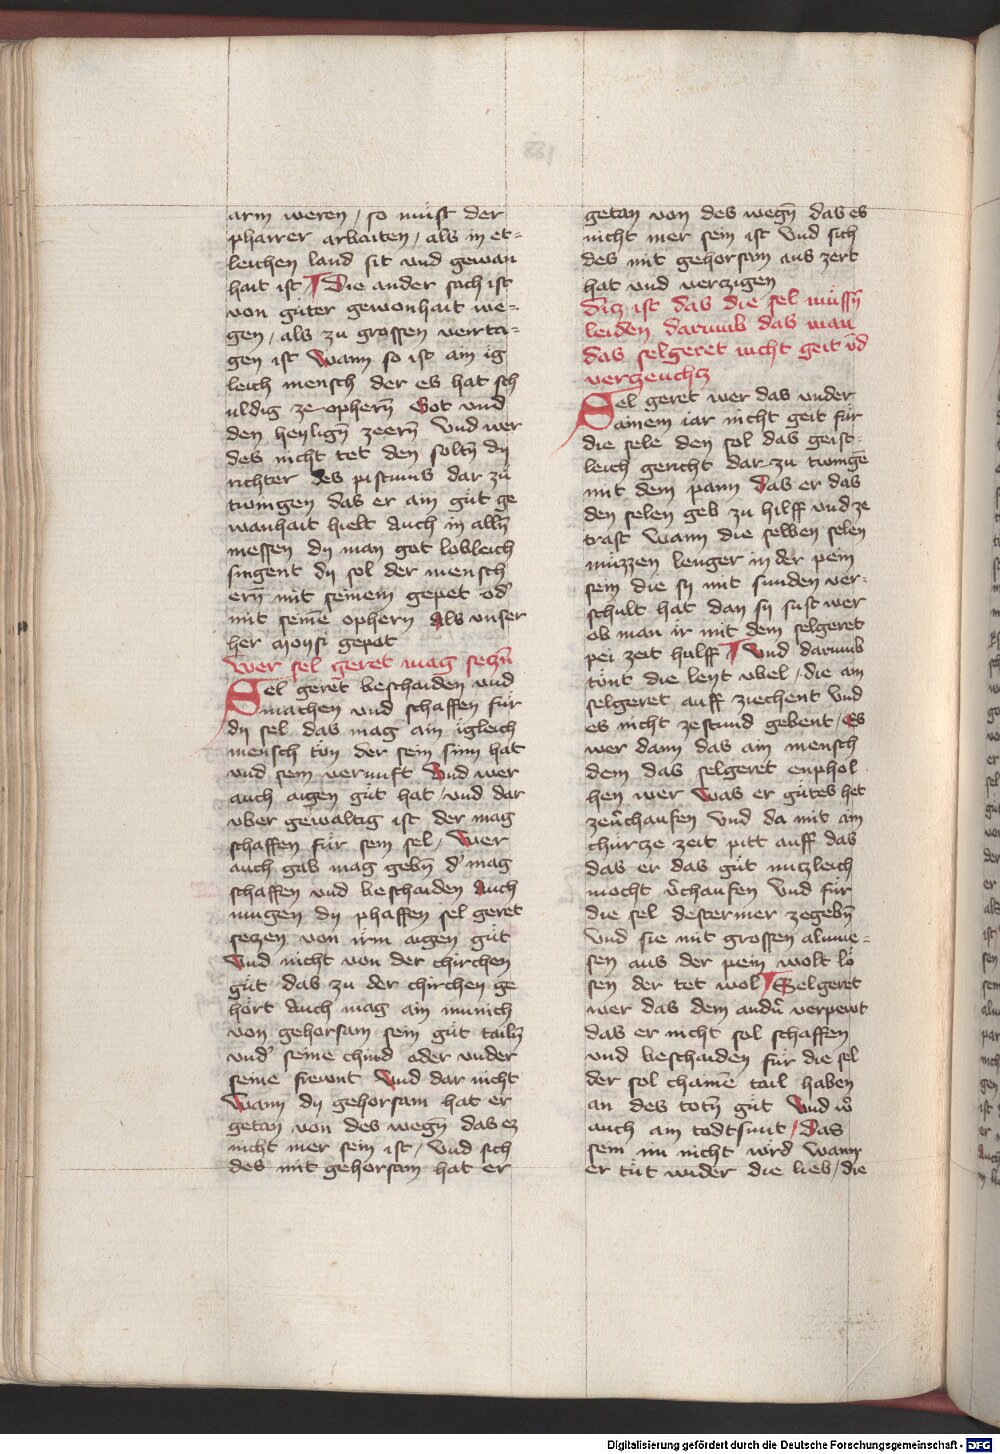 arm weren / so müst der
pharrer arbaiten / als in et=
leichen land sit vnd gewan
hait ist ¶ Die ander sach ist
von güter gewonhait we=
gen / als zu grossen veirta=
gen ist Wann so ist ain ig
leich mensch der es hat sch
uldig ze opherñ Got vnd
den heyligñ zeerñ Vnd wer
des nicht tet den soltñ dy
richter des pistums dar zů
twingen das er ain gůt ge
wanhait hielt Auch in alln̄
messen dy man got lobleich
singent dy sol der mensch
ern̄ mit seinem gepet od'
mit seinē ophern Als vnser
her Moysi gepot
Wer sel geret mag seczn̄
Sel geret beschaiden vnd
machen vnd schaffen für
dy sel das mag ain igleich
mensch tün der sein sinn hat
vnd sein vernuft Vnd wer
auch aigen gůt hat / vnd dar
vber gewaltig ist der mag
schaffen für sein sel / Wer
auch gab mag gebn̄ d' mag
schaffen vnd beschaiden Auch
mugen dy phaffen sel geret
seczen von irm aigen gůt
Vnd nicht von der chirchen
gůt das zu der chirchen ge
hört Auch mag ain munich
von gehorsam sein gůt tailn̄
vnd' seine chind oder vnder
seine frewnt Vnd dar nicht
Wann dy gehorsam hat er
getan von des wegn̄ das ez
nicht mer sein ist / Vnd sich
des mit gehorsam hat er
getan von des wegn̄ das es
nicht mer sein ist Vnd sich
des mit gehorsam aus zert
hat vnd verczigen
Dicz ist das die sel müssn̄
leiden darumb das man
das selgeret nicht geit vd
verczeuchcz
Sel geret wer das vnder
ainem iar nicht geit für
die sele den sol das geist=
leich gericht dar zu twingē
mit dem pann Das er das
den selen geb zu hilff vnd ze
trast Wann die selben selen
müzzen lenger in der pein
sein die sy mit sunden ver=
schult hat dan sy sust wer
ob man ir mit dem selgeret
pei zeit hulff ¶ Vnd darumb
tönt die leyt vbel / die ain
selgeret auff ziechent Vnd
es nicht zestund gebent / Es
wer dann das ain mensch
dem das selgeret enphol
hen wer Was er gütes het
zeu̇chaufen Vnd da mit ain
chürcze zeit pitt auff das
das er das gůt nuczleich
mocht v̇chaufen Vnd für
die sel destermer zegebn̄
Vnd sie mit grossen almue=
sen aus der pein wolt lö
sen der tet wol ¶ Selgeret
wer das dem andn̄ verpewt
das er nicht sol schaffen
vnd beschaiden für die sel
der sol chainē tail haben
an des totn̄ gůt Vnd w̄
auch ain todtsunt / Das
sein im nicht wird Wann
er tüt wider die lieb / die
Digitalisierung gefördert durch die Deutsche Forschungsgemeinschaft - DFG